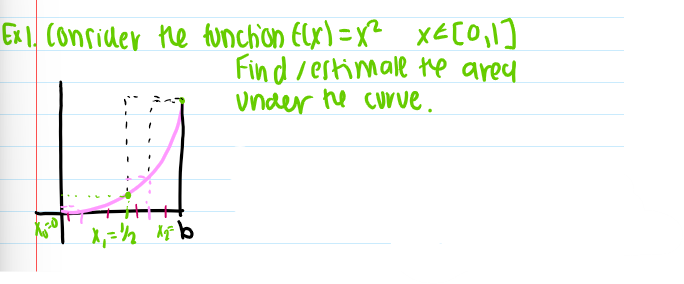 Ex1. Consider the function f(x) = x² x∈[0,1]
Find / estimate the area
under the curve.
x₀=0 x₁=½ x₂= b